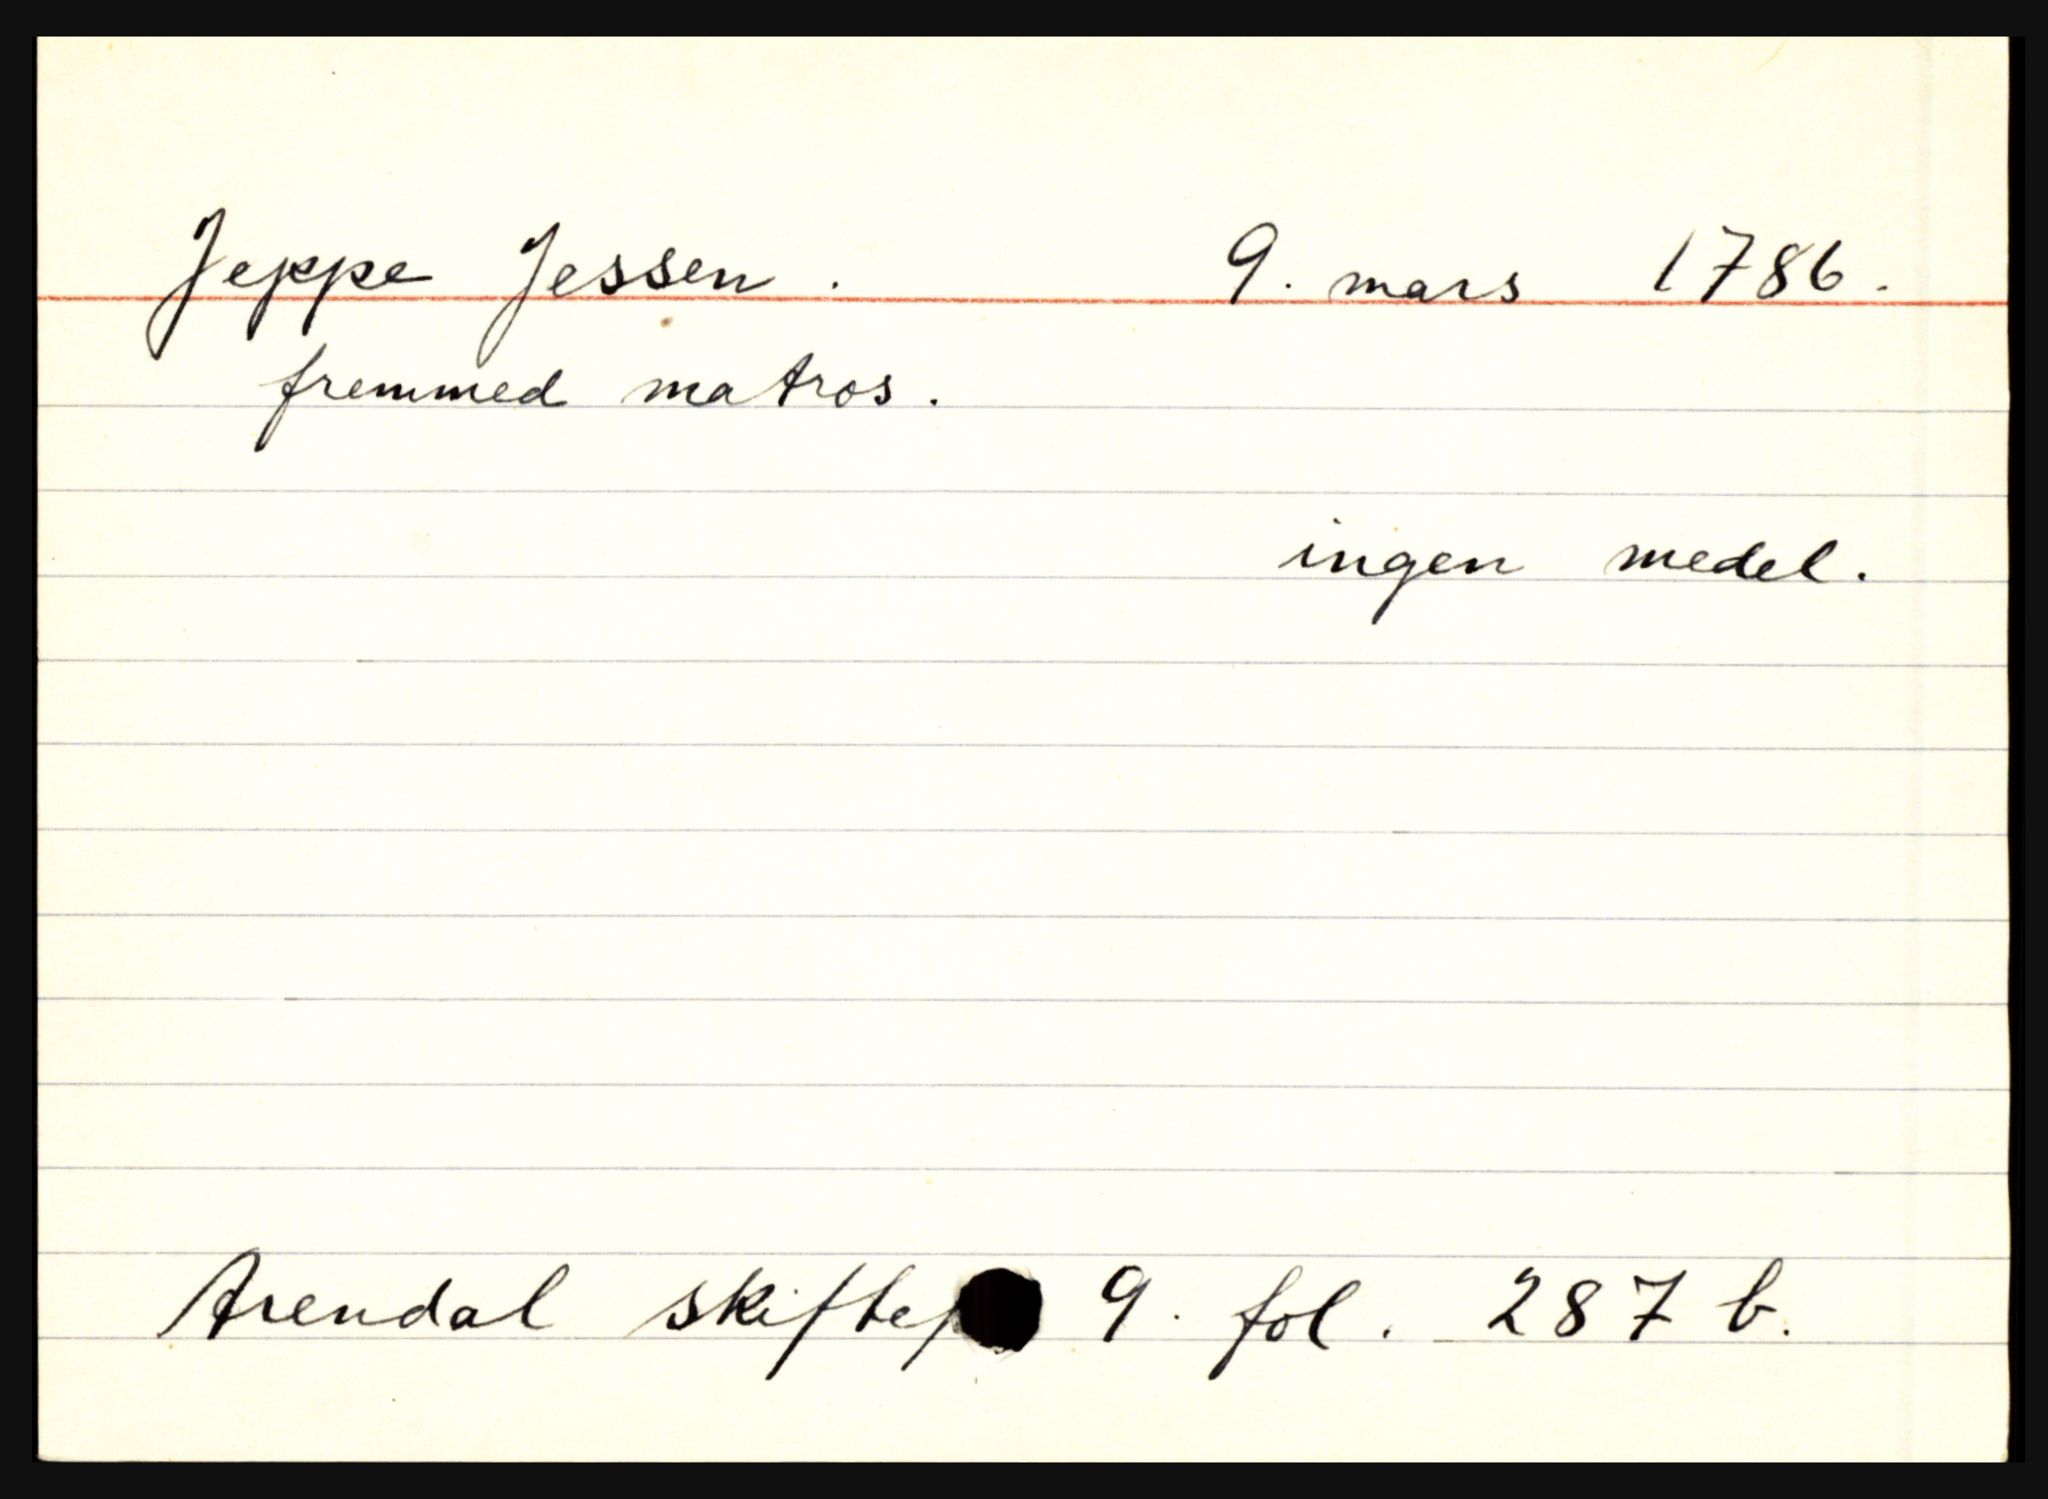 Jeppe Jessen. 9. mars 1786.
fremmed matros.
ingen medel.
Arendal 9. fol. 287 b.